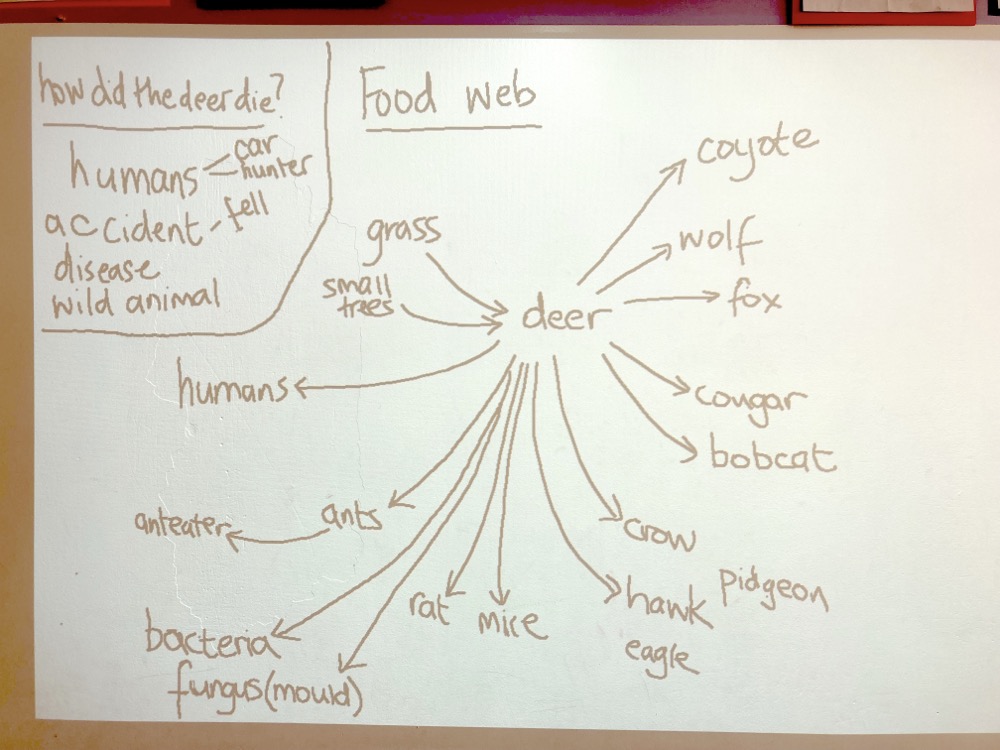 how did the deer die?
humans
car
hunter
accident - fell
disease
wild animal
Food web
coyote
wolf
fox
grass
small
trees
deer
humans
cougar
bobcat
anteater
ants
crow
hawk
pidgeon
eagle
rat
mice
bacteria
fungus(mould)